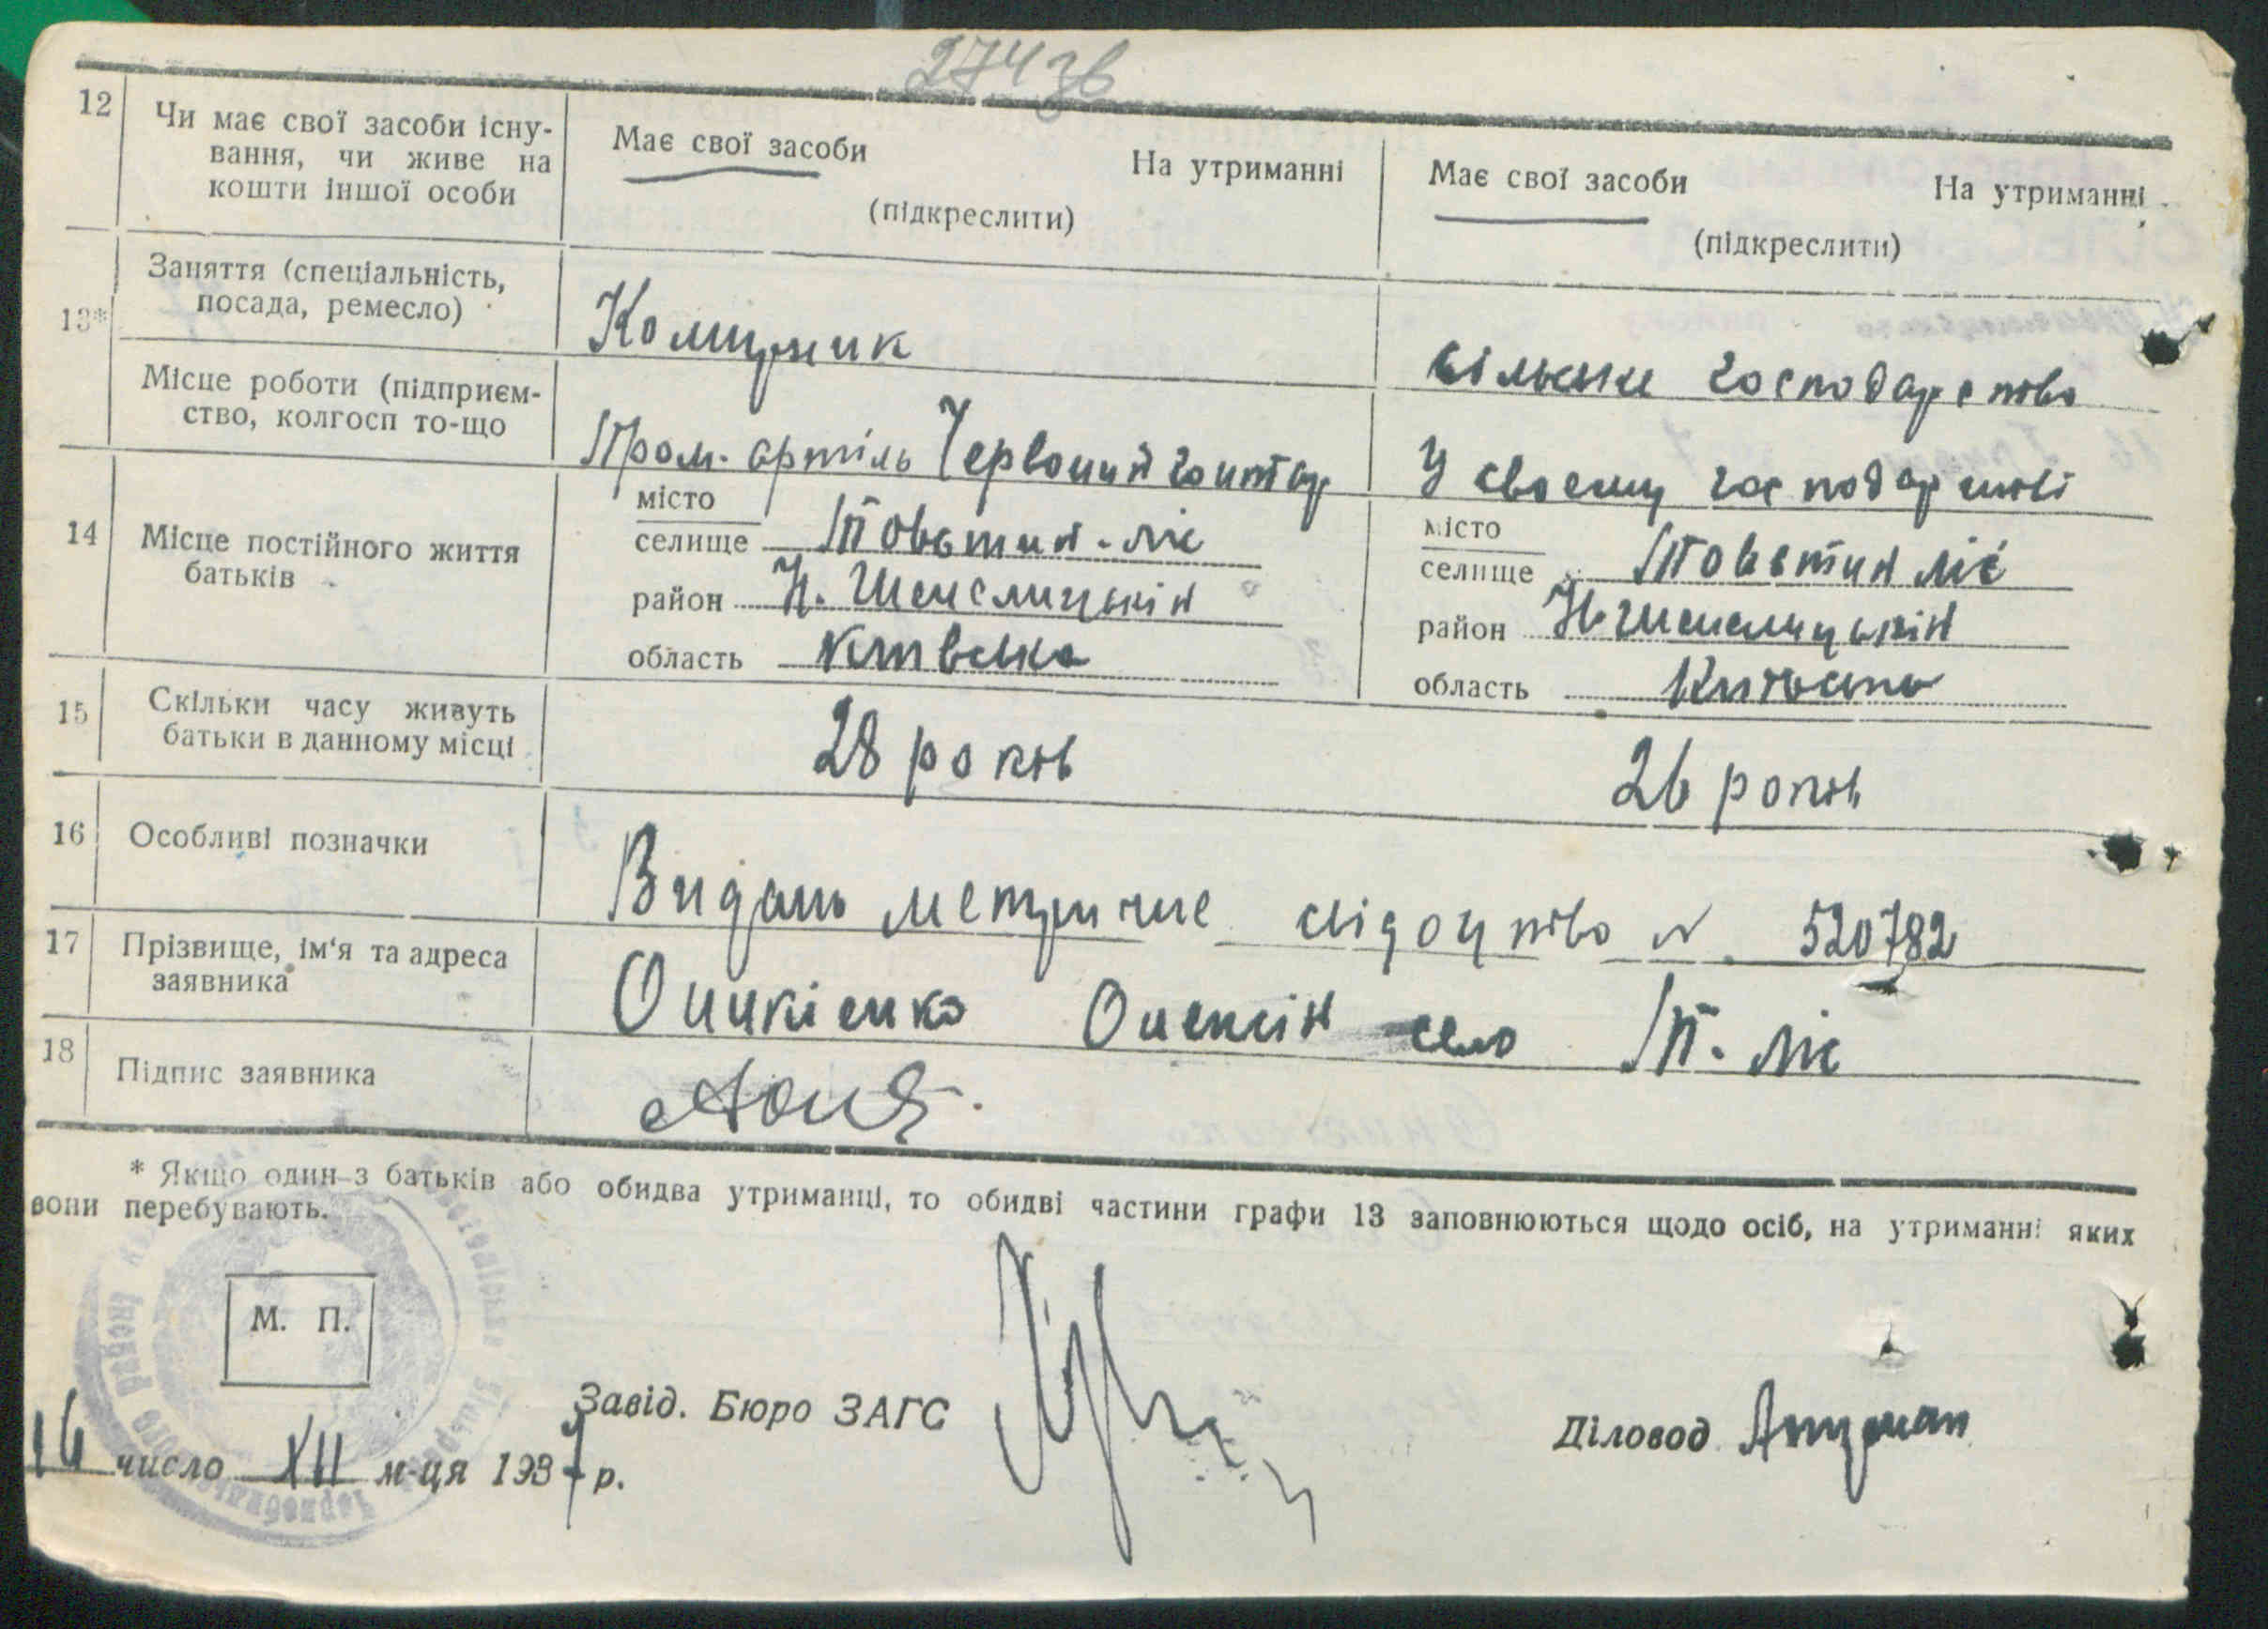 274 зв
12 Чи має свої засоби існу-
вання, чи живе на
кошти іншої особи
Має свої засоби На утриманні
(підкреслити)
Має свої засоби На утриманні
(підкреслити)
13* Заняття (спеціальність,
посада, ремесло)
Комирник
сільське господарство
Місце роботи (підприєм-
ство, колгосп то-що
Пром. артіль Червоний гонтар
У своєму господарстві
14 Місце постійного життя
батьків
місто
селище Товстий-ліс
район Н. Шепелицький
область Київська
місто
селище Товстий ліс
район Н Шепелицький
область Київська
15 Скільки часу живуть
батьки в данному місці
28 років
26 років
16 Особливі позначки
Видано метричне свідоцтво № 520782
17 Прізвище, ім'я та адреса
заявника
Оникієнко Олексій село Т. ліс
18 Підпис заявника
* Якщо один з батьків або обидва утриманці, то обидві частини графи 13 заповнюються щодо осіб, на утриманні яких
вони перебувають.
М. П.
Завід. Бюро ЗАГС
Діловод
16 число XII м-ця 1937 р.